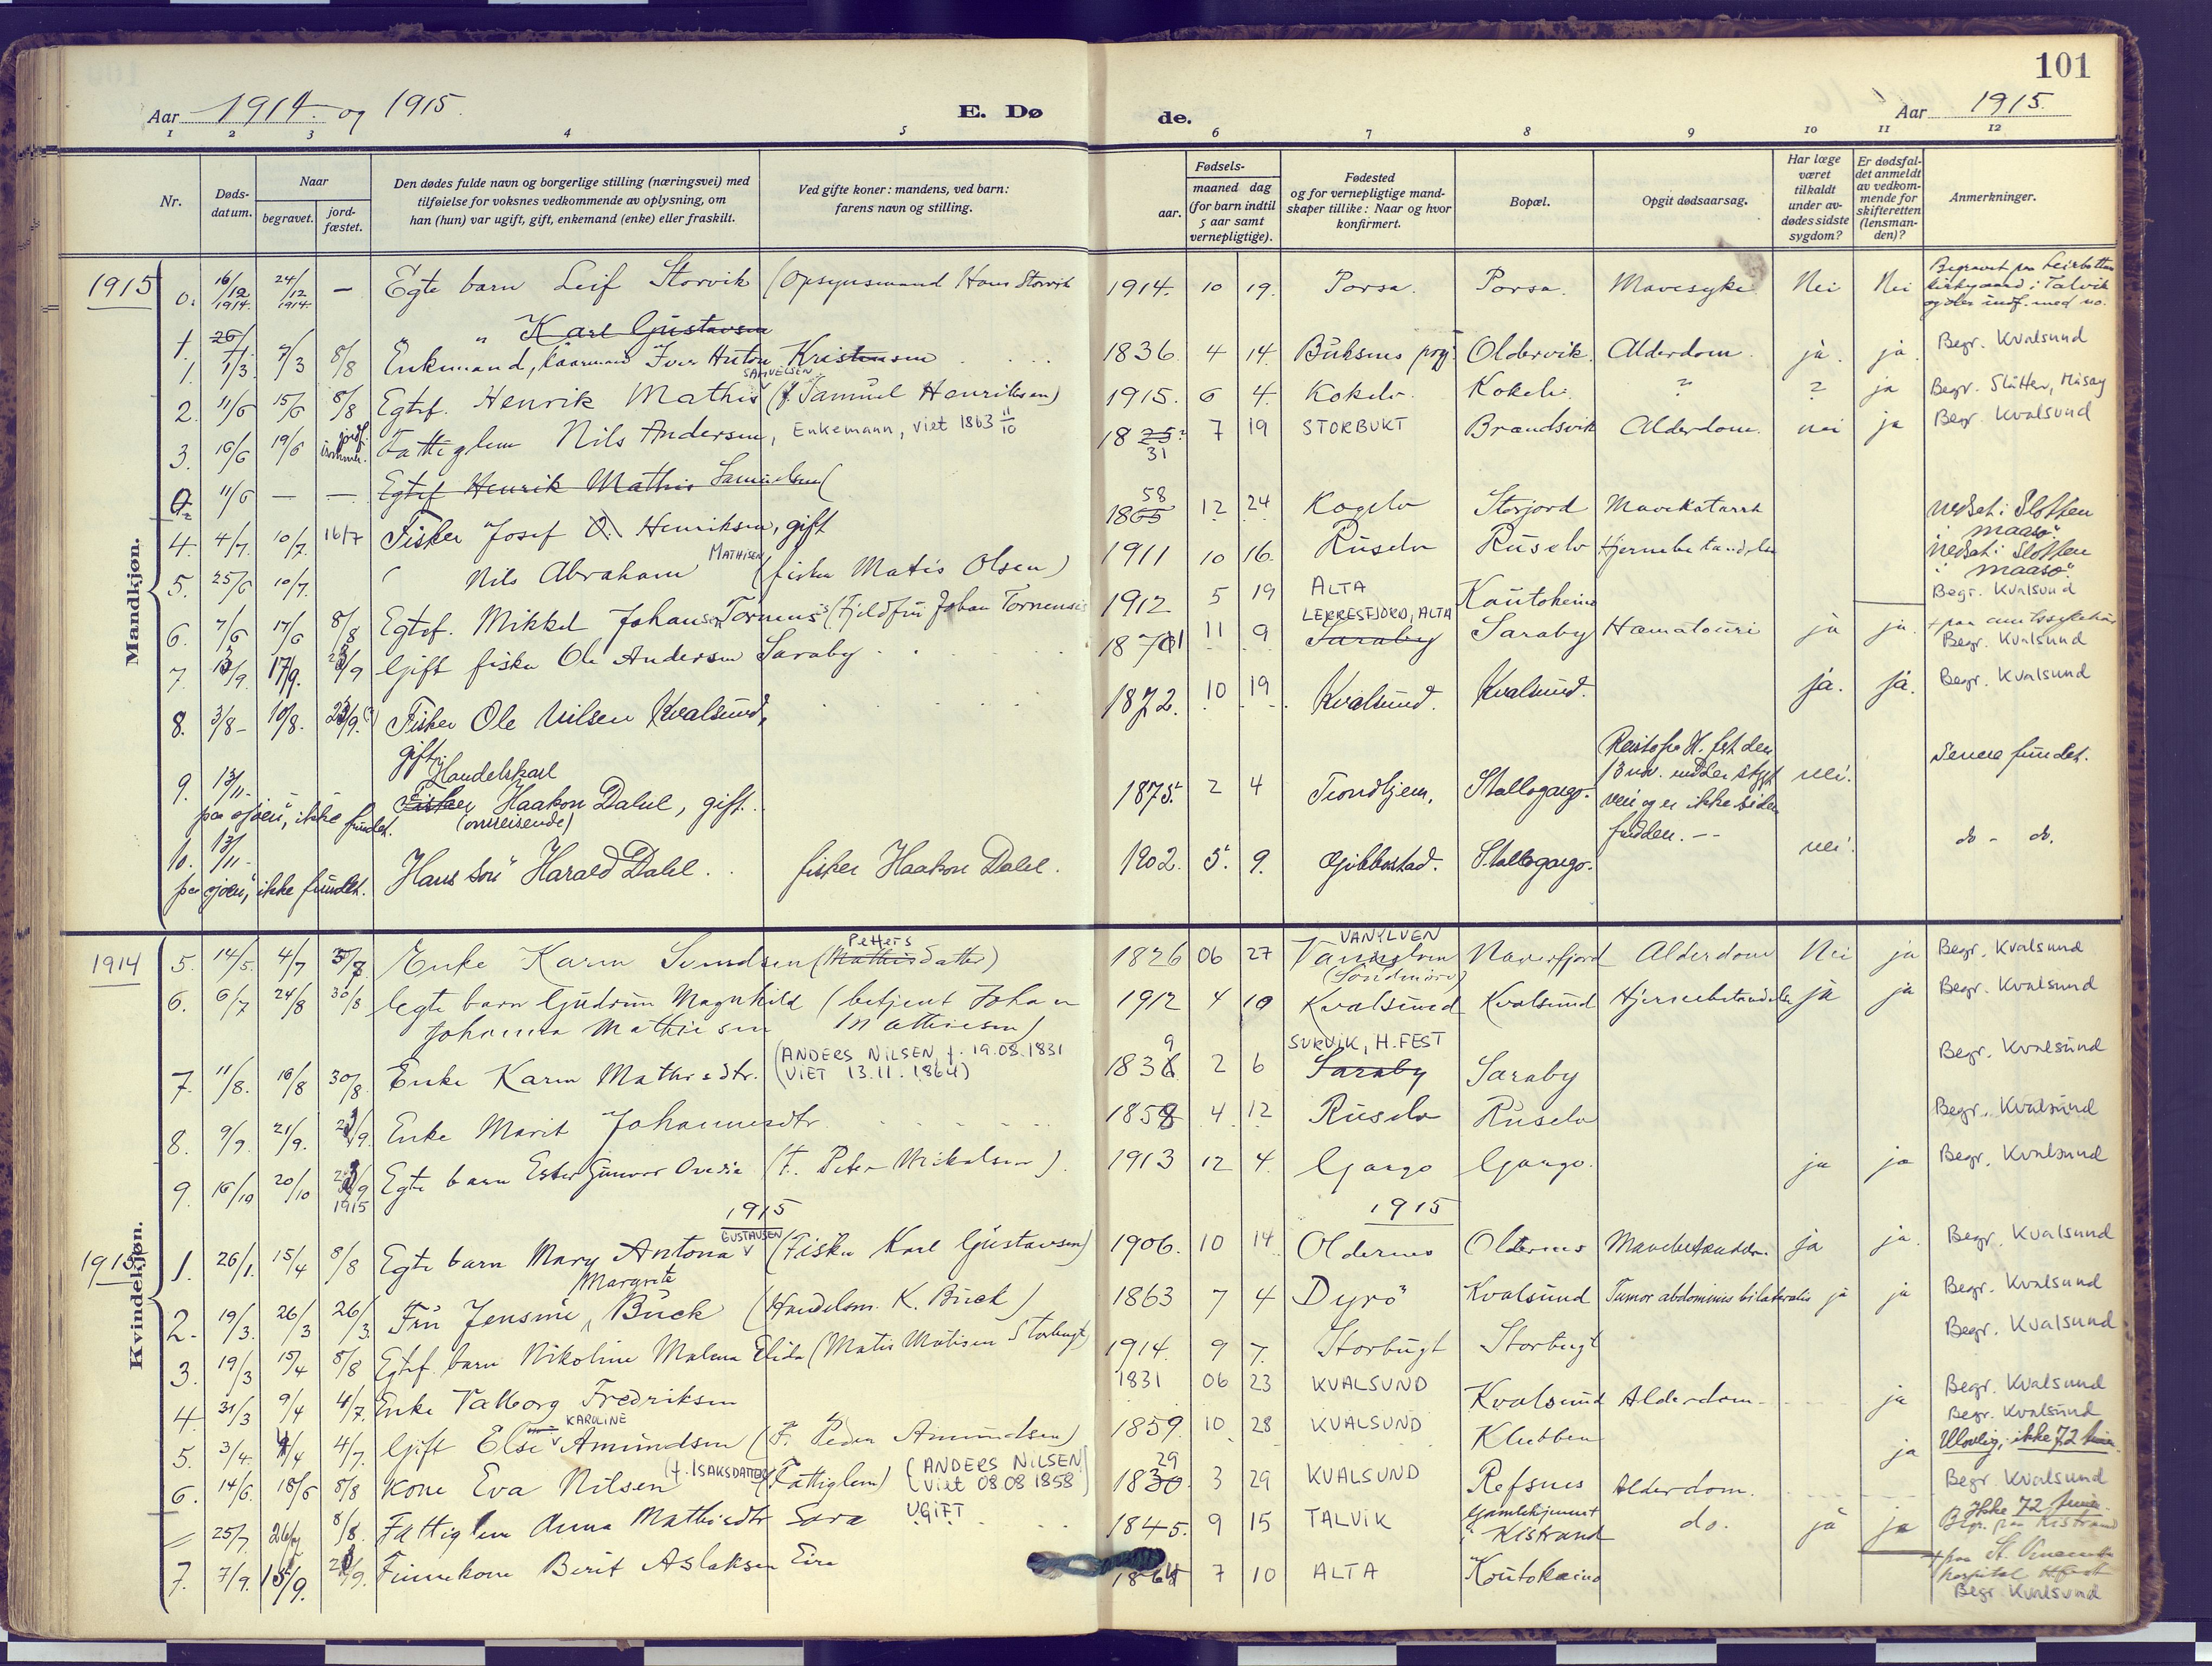 101
Aar 1914 og 1915. E. Dø de. Aar 1915.
1 2 3 4 5 6 7 8 9 10 11 12
Nr.
Døds-
datum.
Naar
begravet.
jord-
fæstet.
Den dødes fulde navn og borgerlige stilling (næringsvei) med
tilføielse for voksnes vedkommende av oplysning, om
han (hun) var ugift, gift, enkemand (enke) eller fraskilt.
Ved gifte koner: mandens, ved barn:
farens navn og stilling.
aar.
Fødsels-
maaned dag
(for barn indtil
5 aar samt
vernepligtige).
Fødested
og for vernepligtige mand-
skaper tillike: Naar og hvor
konfirmert.
Bopæl.
Opgit dødsaarsag.
Har læge
været
tilkaldt
under av-
dødes sidste
sygdom?
Er dødsfal-
det anmeldt
av vedkom-
mende for
skifteretten
(lensman-
den)?
Anmerkninger.
Mandkjøn.
1915 0. 16/12 1914. 24/12 1914. — Egte barn Leif Storvik (Opsynsmand Hans Storvik 1914. 10 19. Porsa. Porsa. Mavesyke Nei Nei Begravet paa Leirbotten
kirkegaard i Talvik
1. 26/ " Karl Gustavsen
1. 1/3. 7/3 8/8 Enkemand, Iver Huton Kristensen 1836. 4 14. Buksnes prgj. Oldervik. Alderdom. ja. ja. Begr. Kvalsund
SAMUELSEN
2. 11/6 15/6 8/8 Egtef. Henrik Mathis (f. Samuel Henriksen) 1915. 6 4. Kokelv. Kokelv. " ? ja Begr. Slåtten, Måsøy
3. 16/6 19/6 Fattiglem Nils Andersen, Enkemann, viet 1863 11/10 1825. 31 7 19 STORBUKT Brandsvik Alderdom. nei ja Begr. Kvalsund
11/6 — — Egtef Henrik Mathis Samuelsen (
4. 4/7. 10/7. 16/7 Fisker Josef O. Henriksen, gift 1865 58 12 24 Kogelv Storjord Mavekatarrh Nedsat i Slotten
i "maasø".
MATHISEN
5. 25/6 10/7. " Nils Abraham (fisker Matis Olsen) 1911 10 16. Ruselv Ruselv Hjernebetændelse Nedsat i Slotten
i "maasø".
6. 7/6 17/6 8/8 Egtef. Mikkel Johansen Tornensis (Fjeldfin Johan Tornensis 1912 5 19 ALTA Kautokeino Begr. Kvalsund
LERRESFJORD, ALTA
7. 13/9. 17/9. 23/9 Gift fisker Ole Andersen Saraby 1871 11 9 Saraby Saraby Hæmatouri ja ja. + paa amtssykehus
Begr. Kvalsund
8. 3/8- 10/8. 23/9.(?) Fisker Ole Nilsen Kvalsund,
gift. 1872. 10 19 Kvalsund. Kvalsund. ja. ja. Begr. Kvalsund
9. 13/11- Handelskarl
Fisker Haakon Dahl, gift.
(omreisende)
paa sjøen, ikke fundet. 1875. 2 4 Trondhjem. Stallogargo. Reiste fra H.fest den
13 nov. under stygt
vei og er ikke siden
funden. -- nei. Senere fundet.
10. 13/11- Hans søn Harald Dahl. fisker Haakon Dahl. 1902. 5. 9. Gibbostad. Stallogargo. nei. do - do.
paa sjøen, ikke fundet.
Kvindekjøn.
1914 5. 14/5. 4/7 5/7. Enke Karen Svendsen (Mathisdatter) Petters 1826 06 27 VANYLVEN
(Søndmøre) Naverfjord Alderdom Nei ja Begr. Kvalsund
6. 6/7 24/8 30/8 Egte barn Gudrun Magnhild (betjent Johan
Johanna Mathiesen Mathiesen) 1912 4 10 Kvalsund Kvalsund Hjernebetændelse ja ja Begr. Kvalsund
7. 11/8. 16/8 30/8. Enke Karen Mathisdtr. (ANDERS NILSEN, f. 19.08.1831
(VIET 13.11.1864) 1836 9 2 6 SURVIK, H.FEST
Saraby Saraby Begr. Kvalsund
8. 9/9. 21/9. 23/9. Enke Marit Johannesdtr 1858 4 12 Ruselv Ruselv Begr. Kvalsund
9. 16/10 20/10 23/9 1915 Egte barn Ester Gunvor Ovedia (F. Peter Mickalsen). 1913 12 4. Gargo Gargo. ja ja Begr. Kvalsund
1915 1915
1915 1. 26/1. 15/4 8/8 Egte barn Mary Antona GUSTAVSEN (Fisker Karl Gustavsen) 1906. 10 14 Oldernes Oldernes Mavebetændelse. ja ja. Begr. Kvalsund
2. 19/3. 26/3 26/3. Fru Jensine Margrete Buck (Handelsm. K. Buck) 1863 7 4 Dyrø Kvalsund Tumor abdominis bilateralis ja ja Begr. Kvalsund
3. 19/3 15/4 8/8 Egtef. barn Nikoline Malena Elida (Matis Matisen Storbugt) 1914. 9 7. Storbugt Storbugt Begr. Kvalsund
4. 31/3 9/4 4/7. Enke Valborg Fredriksen 1831 06 23 KVALSUND Kvalsund Alderdom. ja Begr. Kvalsund
5. 3/4. 9/4 4/7. Gift Elsi KAROLINE Amundsen (F. Peder Amundsen) 1859. 10 28 KVALSUND Klubben ja Begr. Kvalsund
Ulovlig, ikke 72 timer.
6. 14/6. 18/6 8/8 Kone Eva Nilsen (f. ISAKSDATTER) (Fattiglem) (ANDERS NILSEN
(Viet 08 08 1858) 1830. 29 3 29 KVALSUND Refsnes Alderdom. Begr. Kvalsund
= 25/7. 26/7. 8/8. Fattiglem Anna Mathisdtr Sara UGIFT 1845. 9 15 TALVIK Gamlehjemmet
i Kistrand do. ja ja Ikke 72 timer.
Begr. paa Kistrand
7. 7/9. 15/9. 23/9. Finnekone Berit Aslaksen Eira 1864 7 10 ALTA Koutokeino + paa St.
hospital Hfest
Begr. Kvalsund